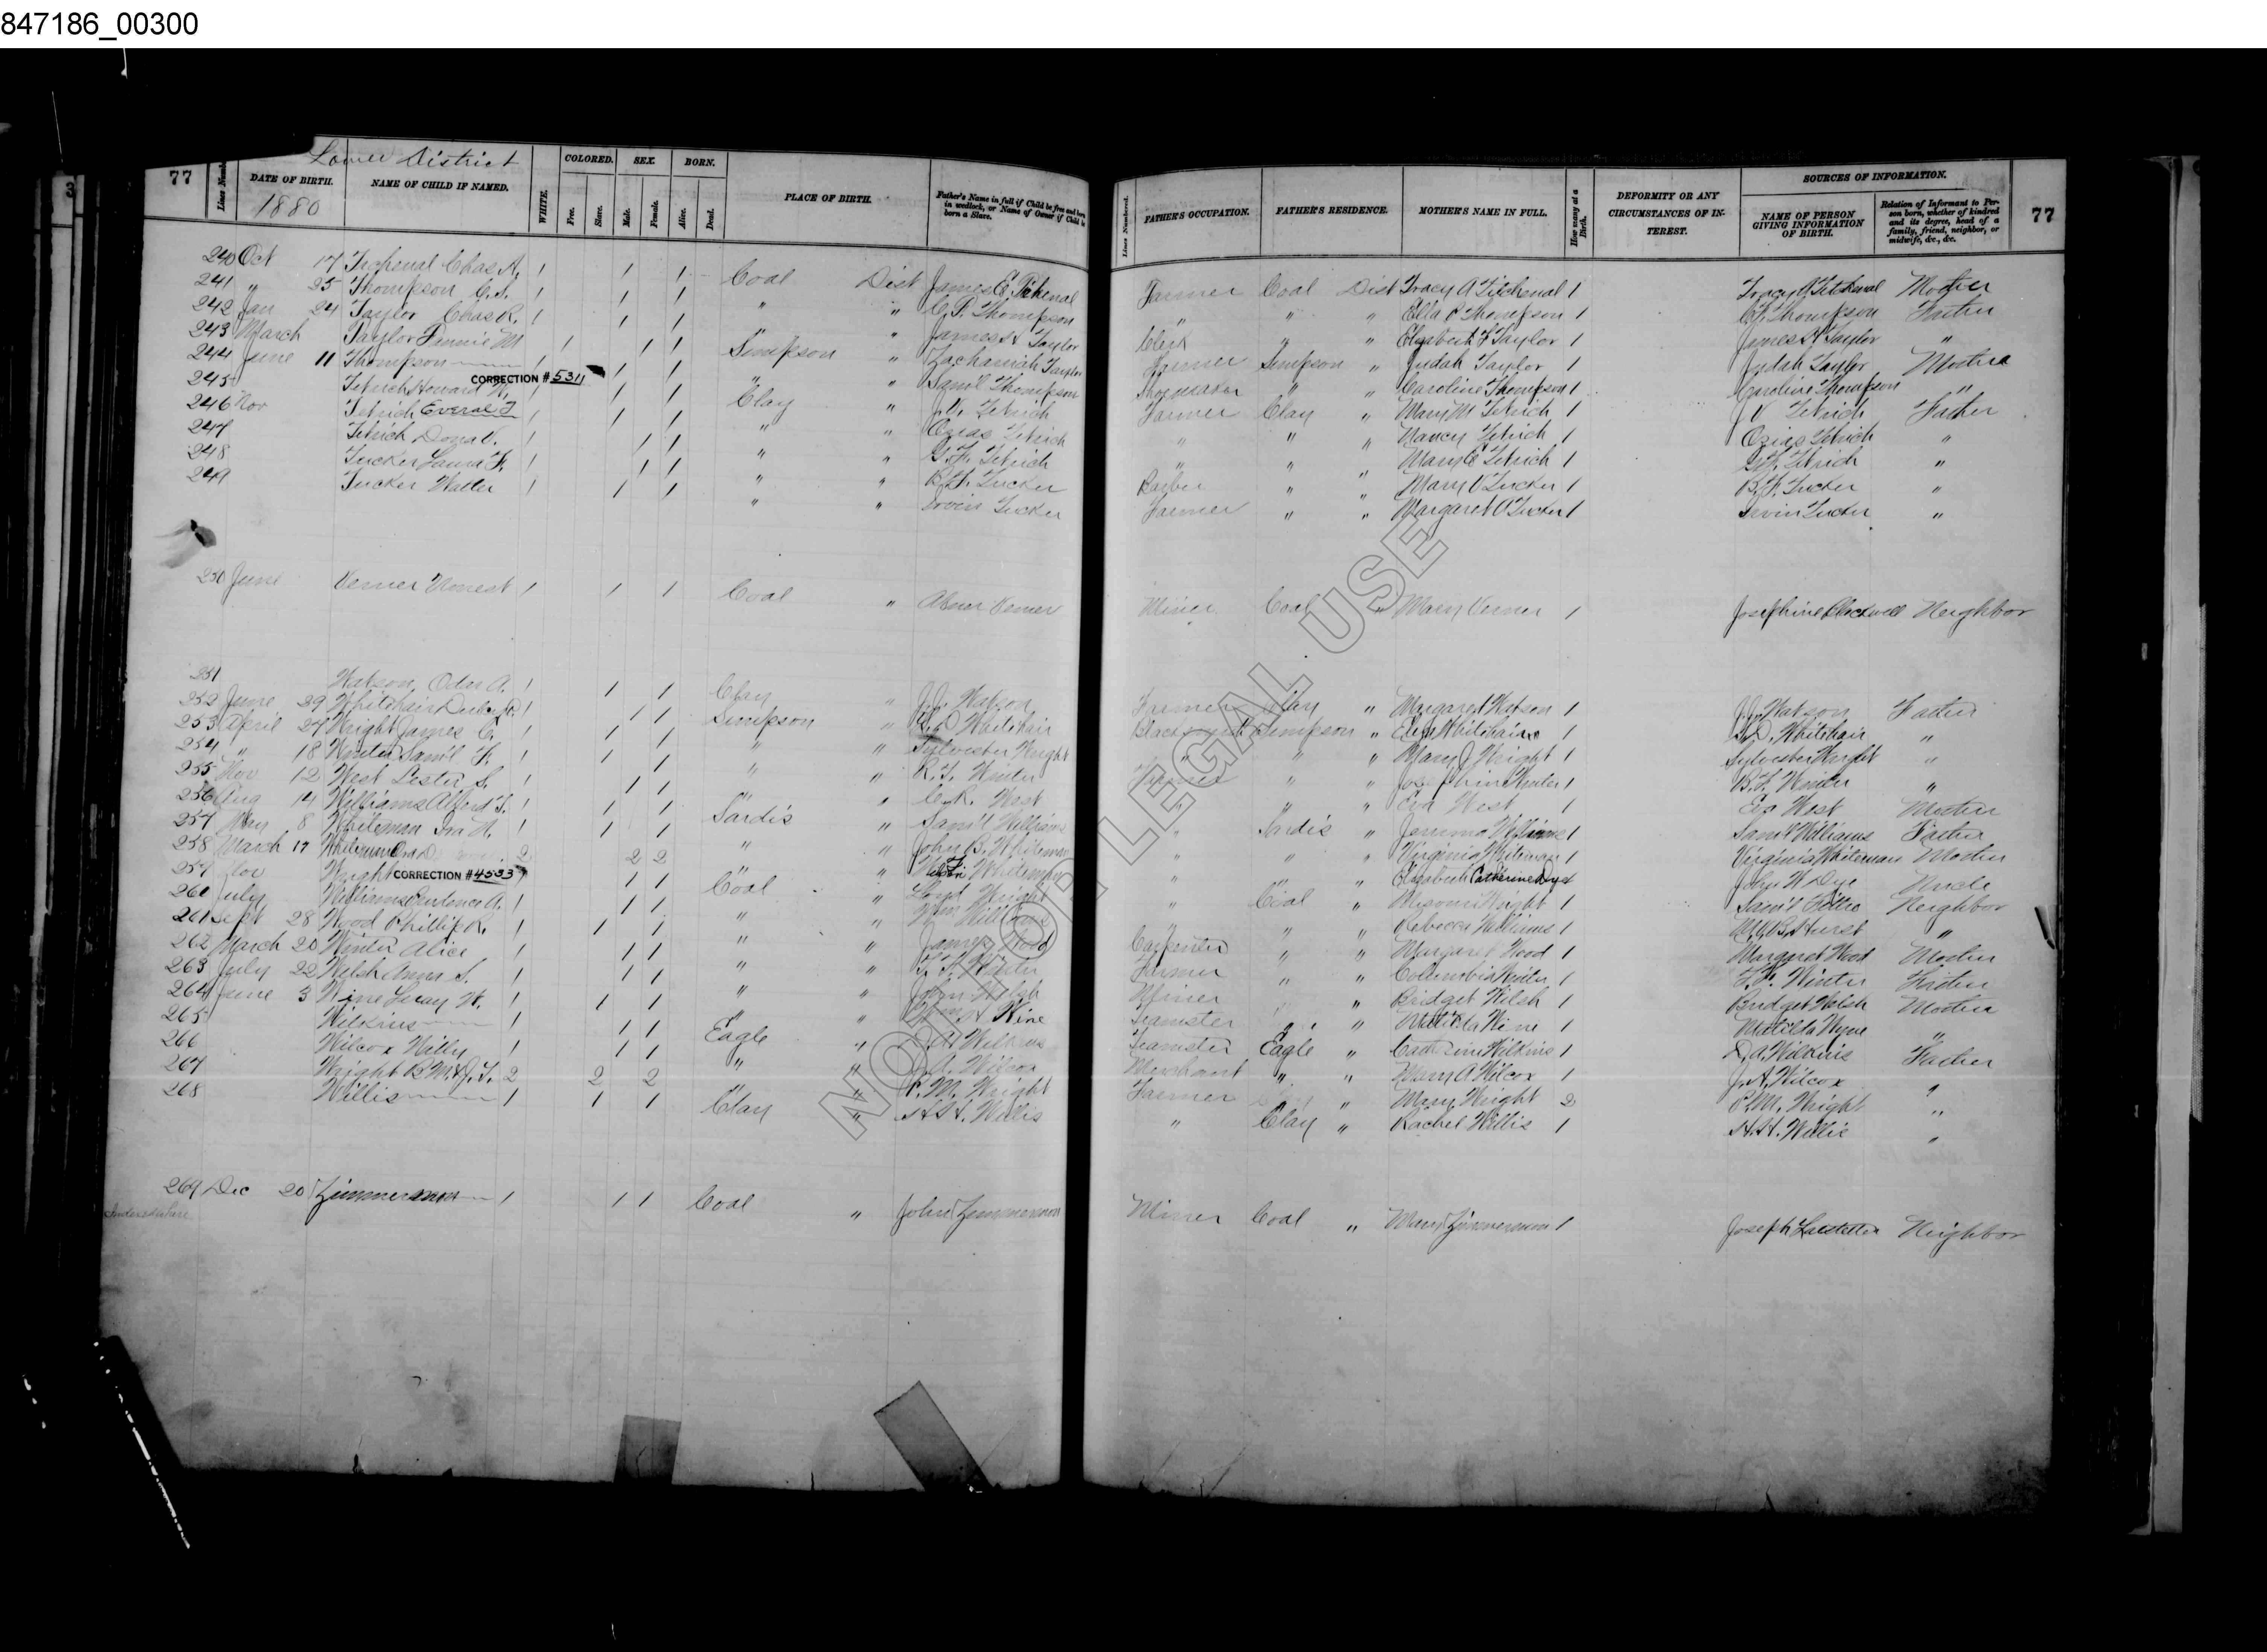 847186_00300
77 Lower District
Lines Numb
DATE OF BIRTH. 1880
NAME OF CHILD IF NAMED.
WHITE.
COLORED. Free. Slave.
SEX. Male. Female.
BORN. Alive. Dead.
PLACE OF BIRTH.
Father's Name in full if Child be free and born in wedlock, or Name of Owner if Child be born a Slave.
Lines Numbered.
FATHER'S OCCUPATION.
FATHER'S RESIDENCE.
MOTHER'S NAME IN FULL.
How many at a Birth.
DEFORMITY OR ANY CIRCUMSTANCES OF INTEREST.
SOURCES OF INFORMATION.
NAME OF PERSON GIVING INFORMATION OF BIRTH.
Relation of Informant to Person born, whether of kindred and its degree, head of a family, friend, neighbor, or midwife, &c., &c.
77
240 Oct 17 Chas A. 1 1 1 Coal Dist James E. Farmer Coal Dist Tracy A Titchenal 1 Tracy A Titchenal Mother
241 " 25 Thompson 1 1 1 " " C. P. Thompson " " " Ella Thompson 1 Thompson Father
242 Jan 24 Taylor Chas R. 1 1 1 " James H Taylor Clerk " " Elizabeth F Taylor 1 James H Taylor "
243 March Taylor Fannie M 1 1 1 Simpson " Zachariah Taylor Farmer Simpson " Judah Taylor 1 Judah Taylor Mother
244 June 11 Thompson 1 1 1 " " Saml Thompson Shoemaker " " Caroline Thompson 1 Caroline Thompson "
245 Tetrich Howard CORRECTION #5311 1 1 1 Clay " J. V. Tetrich Farmer Clay " Mary M Tetrich 1 J V Tetrich Father
246 Nov Tetrich Everal 1 1 1 " " Ozias Tetrich " " " Nancy Tetrich 1 Ozias Tetrich "
247 Tetrich Dona V. 1 1 1 " " G. F. Tetrich " " " Mary E Tetrich 1 G. F. Tetrich "
248 Tucker Laura F. 1 1 1 " " B. F. Tucker Barber " " Mary V Tucker 1 B. F. Tucker "
249 Tucker Walter 1 1 1 " " Tucker Farmer " " Margaret Tucker 1 Irvin Tucker "
250 June Verner 1 1 1 Coal " Abner Verner Miner Coal " Mary Verner 1 Josephine Blackwell Neighbor
251 Watson A. 1 1 1 Clay " J. J. Watson Farmer Clay " Margaret Watson 1 J. J. Watson Father
252 June 29 Whitehair 1 1 1 Simpson " D Whitehair Blacksmith Simpson " Whitehair 1 D. Whitehair "
253 April 24 Wright James C. 1 1 1 " " Sylvester Wright " " " Mary J Wright 1 Sylvester Wright "
254 " 18 Winter Saml F. 1 1 1 " " Winter Farmer " " Josephine Winter 1 Winter "
255 Nov 12 West Lester S. 1 1 1 " " C. R. West " " " Eva West 1 Eva West Mother
256 Aug 14 Williams 1 1 1 Sardis " Saml Williams " Sardis " Jemima Williams 1 Saml Williams Father
257 May 8 Whiteman Ira 1 1 1 " " John B. Whiteman " " " Virginia Whiteman 1 Virginia Whiteman Mother
258 March 17 Whiteman 2 2 2 " " Whiteman " " " Elizabeth Catherine Dye John W Dye Uncle
259 Nov Wright CORRECTION #4533 1 1 Coal " Wright " Coal " Missouri Wright 1 Saml Neighbor
260 July Williams A. 1 1 1 " " Wm Williams " " " Rebecca Williams 1 Hurst "
261 Sept 28 Wood Phillip R. 1 1 1 " " James Wood Carpenter " " Margaret Wood 1 Margaret Wood Mother
262 March 20 Winter Alice 1 1 1 " " Winter Farmer " " Columbia Winter 1 Winter Father
263 July 22 Welsh Anna S. 1 1 1 " " John Welsh Miner " " Bridget Welsh 1 Bridget Welsh Mother
264 June 3 Wine H. 1 1 1 " " Wm H Wine Teamster " " Matilda Wine 1 Matilda Wyne "
265 Wilkins 1 1 1 Eagle " Wilkins Teamster Eagle " Catherine Wilkins 1 D. A. Wilkins Father
266 Wilcox Willy 1 1 1 " " J. A. Wilcox Merchant " " Mary A Wilcox 1 J. A. Wilcox "
267 Wright R M & J. T. 2 2 2 " " P. M. Wright Farmer " Mary Wright 2 P. M. Wright "
268 Willis 1 1 1 Clay " H. H. Willis " Clay " Rachel Willis 1 H. H. Willis "
269 Dec 20 Zimmerman 1 1 1 Coal " John Zimmerman Miner Coal " Mary Zimmerman 1 Joseph Neighbor
NOT FOR LEGAL USE